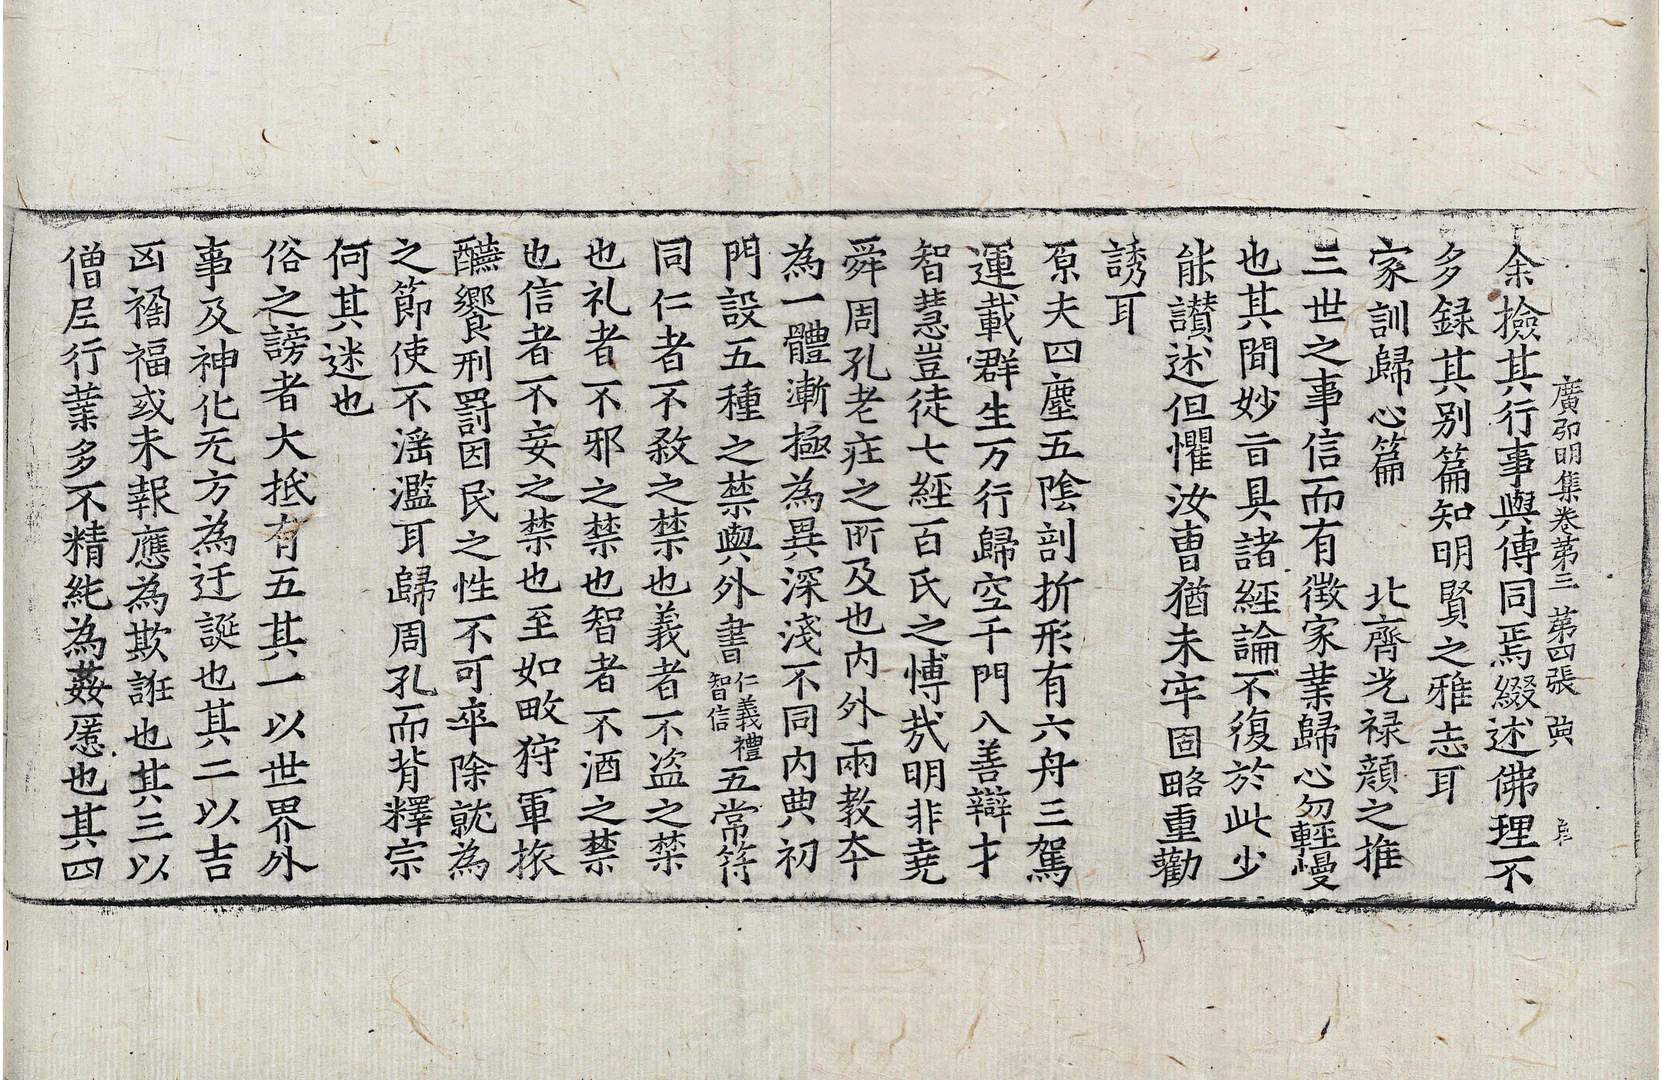 廣弘明集卷第三 第四張 典
余撿其行事與傳同焉綴述佛理不
多録其别篇知明賢之雅志耳
家訓歸心篇 北齊光禄顔之推
三世之事信而有徵家業歸心勿輕慢
也其間妙㫖具諸經論不復於此少
能讃述但懼汝曹猶未牢固略重勸
誘耳
原夫四塵五隂剖折形有六舟三駕
運載群生万行歸空千門入善辯才
智慧豈徒七經百氏之慱㢤明非堯
舜周孔老疘之所及也内外兩教夲
為一體漸極為異深淺不同内典初
門設五種之禁與外書仁義禮智信五常符
同仁者不煞之禁也義者不盗之禁
也礼者不邪之禁也智者不酒之禁
也信者不妄之禁也至如畋狩軍旅
醼饗刑罸因民之性不可卒除就為
之節使不滛濫耳歸周孔而背釋宗
何其迷也
俗之謗者大抵有五其一以世界外
事及神化无方為迂誕也其二以吉
凶禍福或未報應為欺誑也其三以
僧尼行業多不精純為姦慝也其四